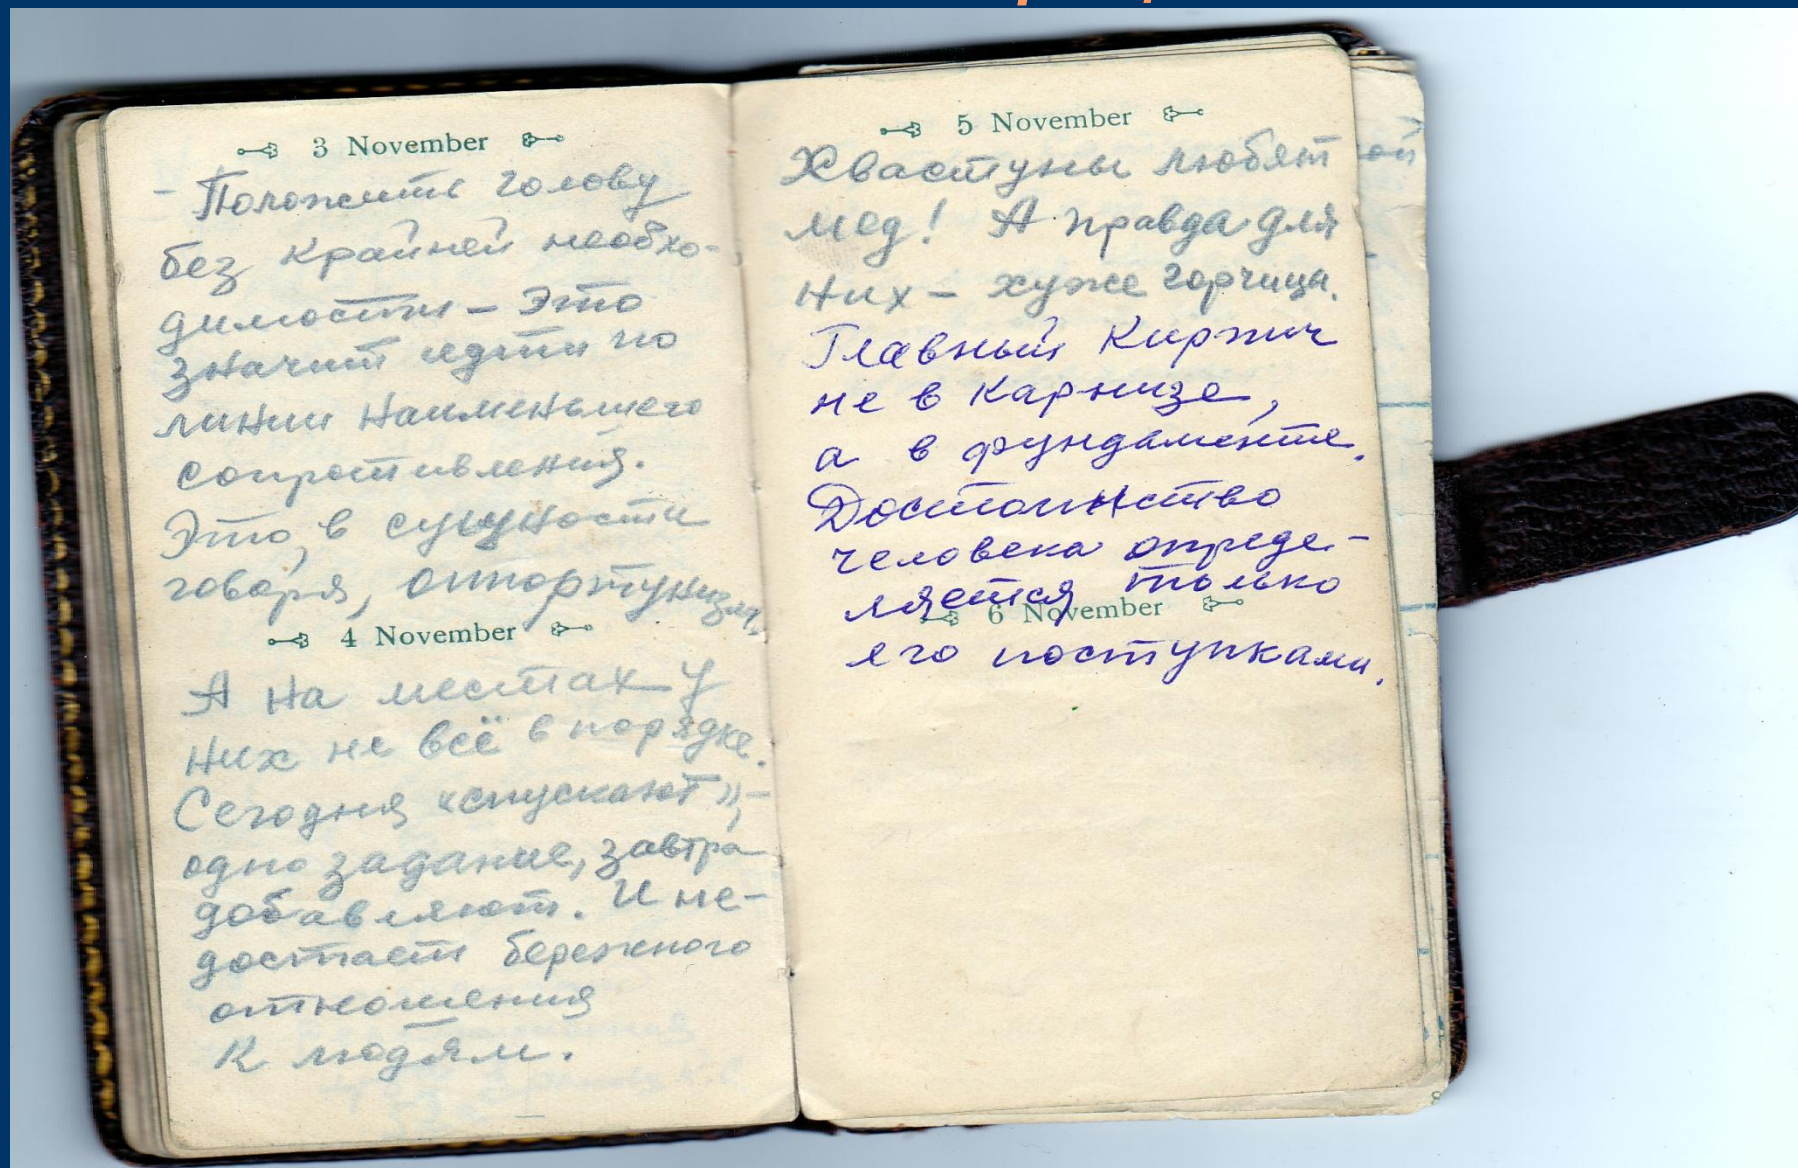 3 November
- Положить голову
без крайней необхо-
димости - Это
значит идти по
линии наименьшего
сопротивления.
Это, в сущности
говоря, оппортунизм.
4 November
А на местах у
них не всё в порядке.
Сегодня «спускают»,-
одно задание, завтра
добавляют. И не-
достаёт бережного
отношения
к людям.
5 November
Хвастуны любят
мед! А правда для
них - хуже горчица.
Главный Кирпич
не в Карнизе,
а в фундаменте.
Достоинство
человека опреде-
ляется только
6 November
его поступками.